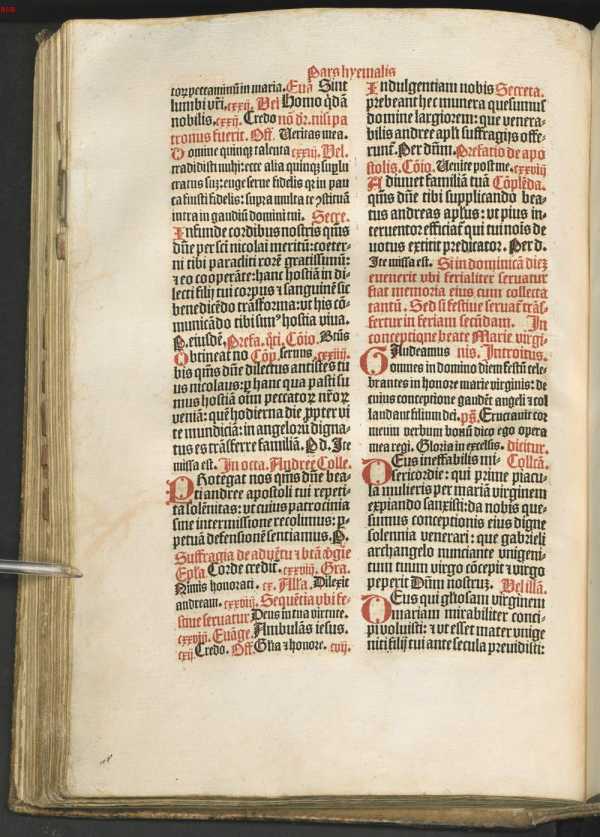 Pars hyemalis
Euāͣ Sint
lumbi vr̄i. cxxij. Vel Homo q̄dā
nobilis. cxxij. Credo nō dr̄. nisi pa
tronus fuerit. Off. Veritas mea.
Domine quinqꝫ talenta cxxiij. Vel.
tradidisti mihi: ecce alia quinqꝫ suplu
cratus suꝫ: euge serue fidelis qꝛ in pau
ca fuisti fidelis: supra multa te ꝯstituā
intra in gaudiū domini tui. Secre.
Infunde cordibus nostris q̄ms
dn̄e per sc̄i nicolai meritū: coeter-
ni tibi paracliti rorē gratissimū:
⁊ eo cooperāte: hanc hostiā in di-
lecti filij tui corpus ⁊ sanguinē sic
benedicēdo trāsforma: vt his cō-
municādo tibi simꝰ hostia viua.
P. eiusdē. Prefa. q̄ti. Cōio. Btūs
Obtineat no Cōp. seruus. cxxiiij.
bis q̄ms dn̄e dilectus antistes tu
us nicolaus: ꝑ hanc qua pasti su
mus hostiā oīm peccatoꝝ nr̄oꝝ
veniā: quē hodierna die ꝓpter vi
te mundiciā: in angeloꝝ digna-
tus es trāsferre familiā. P d. Ite
missa est. In octa. Andree Colle.
PRotegat nos q̄ms dn̄e bea-
ti andree apostoli tui repeti-
ta solēnitas: vt cuius patrocinia
sine intermissione recolimus: ꝑ-
petuā defensionē sentiamus. P.
Suffragia de aduētu ⁊ btā v̄gīe
Epl̄a. Corde credit. cxxviij. Gra.
Nimis honorati. cx. All̄a. Dilexit
andream. cxxviij. Sequētia vbi fe-
stiue seruatur Deus in tua virtute.
cxxviij. Euāge. Ambulās iesus.
cxij. Credo. Off. Gl̄ia ⁊ honore. cvij.
Indulgentiam nobis Secreta.
prebeant hec munera quesumus
domine largiorem: que venera-
bilis andree apl̄i suffragijs offe-
runt̄. Per dn̄m. Prefatio de apo
stolis. Cōio. Venite post me. cxxviij
Adiuuet familiā tuā Cōplēda.
q̄ms dn̄e tibi supplicando bea-
tus andreas apl̄us: vt pius in-
teruentor efficiat̄ qui tui nois de
uotus extitit predicator. Per d.
Ite missa est. Si in dominicā dieꝫ
euenerit vbi ferialiter seruatur
fiat memoria eius cum collecta
tantū. Sed si festiue seruat̄ trās-
fertur in feriam secūdam. In
conceptione beate Marie virgi-
GAudeamus nis. Introitus.
omnes in domino diem festū cele-
brantes in honore marie virginis: de
cuius conceptione gaudēt angeli ⁊ col
laudant filium dei. pō. Eructauit cor
meum verbum bonū dico ego opera
mea regi. Gloria in excelsis. dicitur.
DEus ineffabilis mi- Collcā.
sericordie: qui prime piacu-
la mulieris per mariā virginem
expiando sanxisti: da nobis que-
sumus conceptionis eius digne
solennia venerari: que gabrieli
archangelo nunciante vnigeni-
tum tuum virgo cōcepit ⁊ virgo
peperit Dn̄m nostruꝫ. Vel illā.
DEus qui gl̄iosam virginem
mariam mirabiliter conci-
pi voluisti: ⁊ vt esset mater vnige
niti filij tui ante secula preuidisti: